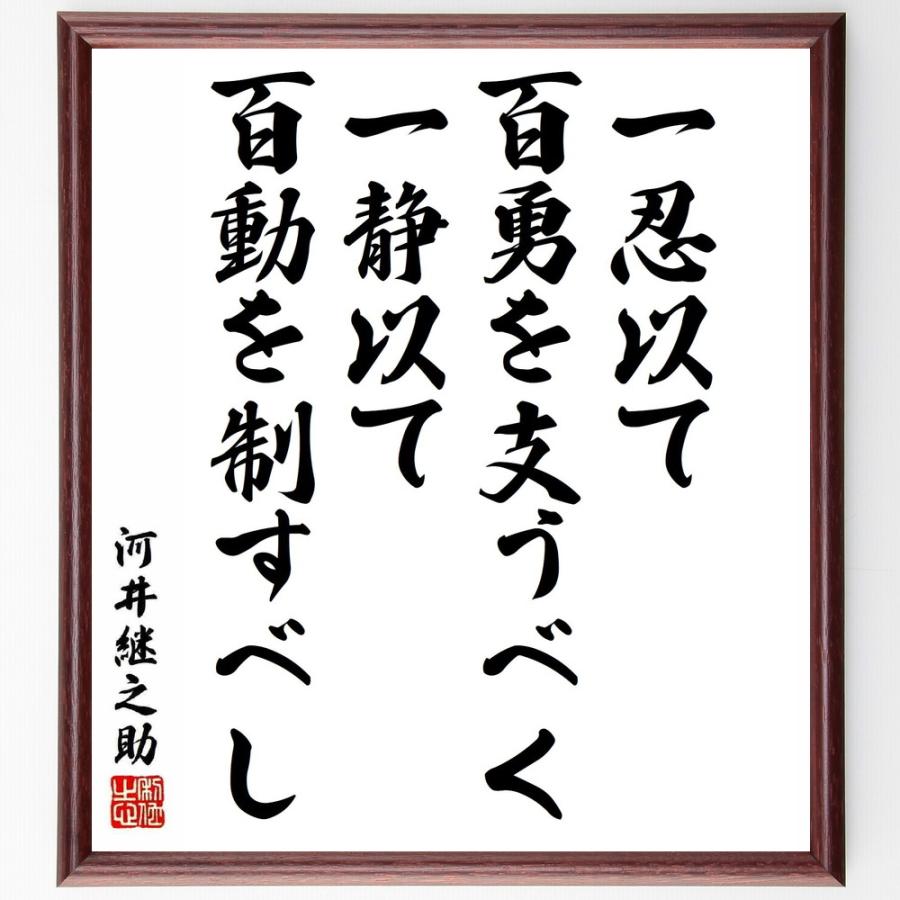 一忍以て
百勇を支うべく
一静以て
百動を制すべし
河井継之助